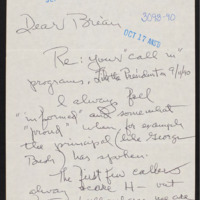 Dear Brian
3098-90
OCT 17 REC'D
Re: your "call in"
programs, the President on 9/11/90
I always feel
"informed" and somewhat
"proud" when for example
the principal (like George
Bush) has spoken.
The first few callers
alway scare H— out